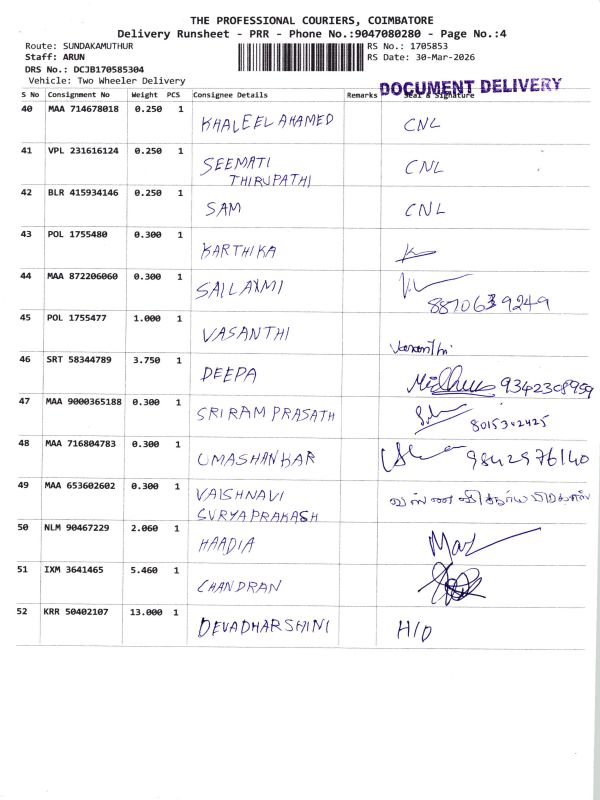 THE PROFESSIONAL COURIERS, COIMBATORE
Delivery Runsheet - PRR - Phone No.:9047080280 - Page No.:4
Route: SUNDAKAMUTHUR RS No.: 1705853
Staff: ARUN RS Date: 30-Mar-2026
DRS No.: DCJB170585304
Vehicle: Two Wheeler Delivery
DOCUMENT DELIVERY
S No Consignment No Weight PCS Consignee Details Remarks Seal & Signature
40 MAA 714678018 0.250 1 KHALEEL AHAMED CNL
41 VPL 231616124 0.250 1 SEEMATI THIRUPATHI CNL
42 BLR 415934146 0.250 1 SAM CNL
43 POL 1755480 0.300 1 KARTHIKA
44 MAA 872206060 0.300 1 SAILAXMI
45 POL 1755477 1.000 1 VASANTHI Vasanthi
46 SRT 58344789 3.750 1 DEEPA 9342308959
47 MAA 9000365188 0.300 1 SRIRAM PRASATH 8015302425
48 MAA 716804783 0.300 1 UMASHANKAR 9842976140
49 MAA 653602602 0.300 1 VAISHNAVI SURYAPRAKASH
50 NLM 90467229 2.060 1 HAADIA
51 IXM 3641465 5.460 1 CHANDRAN
52 KRR 50402107 13.000 1 DEVADHARSHINI H/O